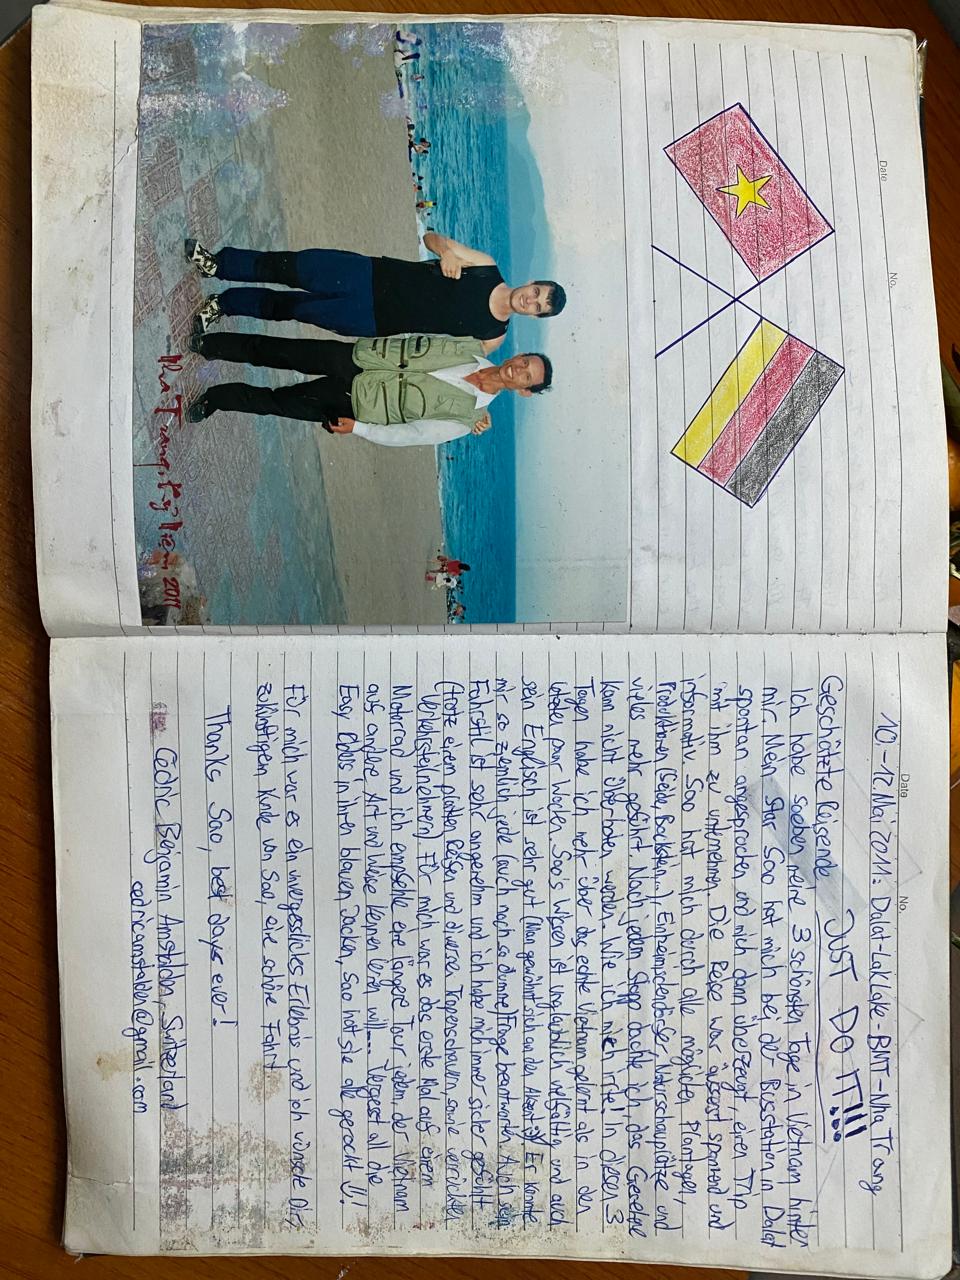 Date
No.
Nha Trang, Kỷ Niệm 2011
Date
No.
10.-12. Mai 2011: Dalat-Lak Lake-BMT-Nha Trang
JUST DO IT!!!
Geschätzte Reisende
Ich habe soeben meine 3 schönsten Tage in Vietnam hinter
mir. Mein Star Sao hat mich bei der Busstation in Dalat
spontan angesprochen und mich dann überzeugt, einen Trip
mit ihm zu unternehmen. Die Reise war äusserst spannend und
informativ. Sao hat mich durch alle möglichen Plantagen,
Produktionen (Seide, Backstein...) Einheimischendörfer, Naturschauplätze und
vieles mehr geführt. Nach jedem Stopp dachte ich, das Gesehene
kann nicht überboten werden. Wie ich mich irrte! In diesen 3
Tagen habe ich mehr über das echte Vietnam gelernt als in den
Wochen zuvor. Sao's Wissen ist unglaublich vielfältig und auch
sein Englisch ist sehr gut (Man gewöhnt sich an den Akzent ;)) Er konnte
mir so ziemlich jede (auch noch so dumme) Frage beantworten. Auch sein
Fahrstil ist sehr angenehm und ich habe mich immer sicher gefühlt
(trotz einem platten Reifen und diversen Tropenschauern, sowie verrückten
Verkehrsteilnehmern). Für mich war es das erste Mal auf einem
Motorrad und ich empfehle eine längere Tour jedem, der Vietnam
auf andere Art und Weise kennen lernen will... Vergesst all die
Easy Riders in ihren blauen Jacken, Sao hat sie alle gerockt!
Für mich war es ein unvergessliches Erlebnis und ich wünsche Dir,
zukünftigem Kunde von Sao, eine schöne Fahrt
Thanks Sao, best days ever!
Cédric Benjamin Amstalden, Switzerland
cedricamstalden@gmail.com